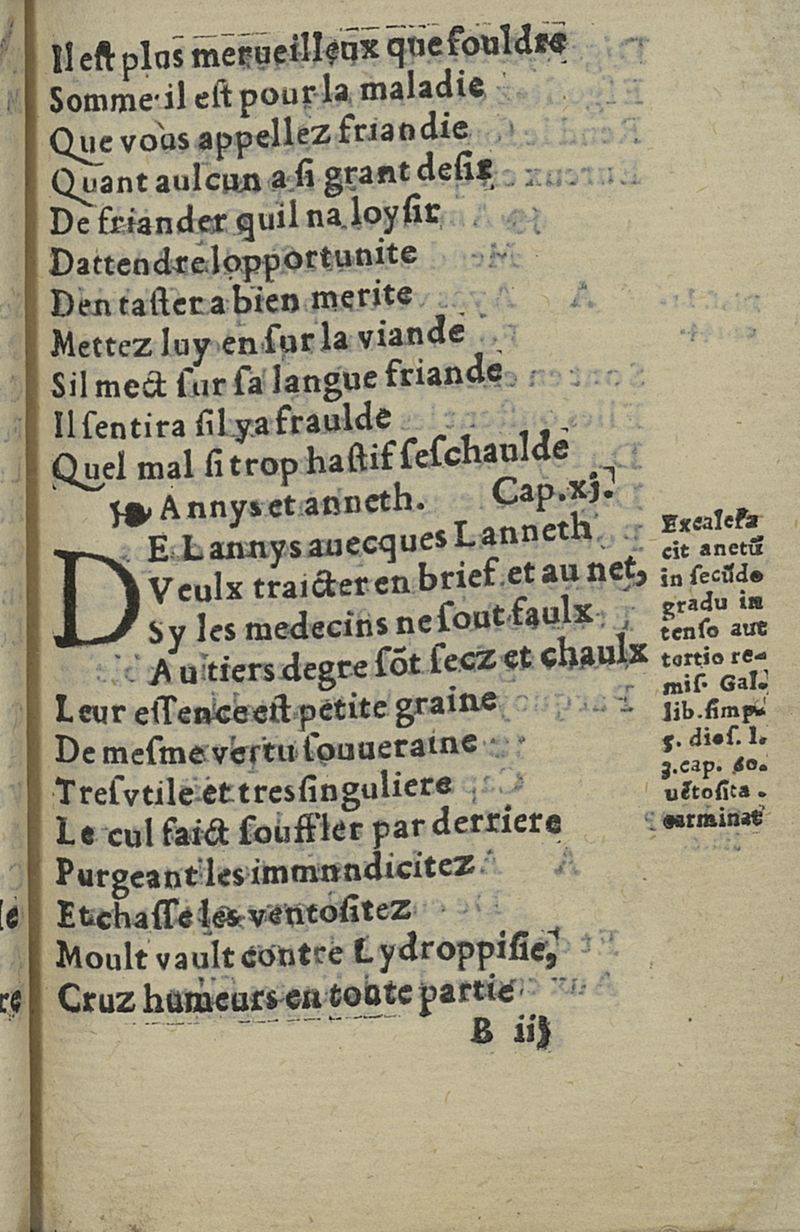 Il est plus merueilleux que fouldre
Somme il eſt pour la maladie
Que vous appellez friandie
Quant aulcun a ſi grant deſir
De friander quil na loyſir
Dattendre lopportunite
Den taſter a bien merite
Mettez luy en ſur la viande
Sil mect ſur ſa langue friande
Il ſentira ſil ya fraulde
Quel mal ſi trop haſtif ſeſchaulde
Annys et anneth. Cap.xj.
DE Lannys auecques Lanneth
Veulx traicter en brief et au net,
Sy les medecins ne ſont faulx
Au tiers degre ſõt ſecz et chaulx
Leur eſſence eſt petite graine
De meſme vertu ſouueraine
Treſvtile et tresſinguliere
Le cul faict ſouffler par derriere
Purgeant les immundicitez
Et chaſſe les ventoſitez
Moult vault contre Lydroppiſie,
Cruz humeurs en toute partie
B iij
Excalefa
cit anetũ
in ſecũdo
gradu in
tenſo aut
tertio re-
miſ. Gal.
lib. ſimp.
5. dieſ. l.
3. cap. 60.
uẽtoſita.
carminat